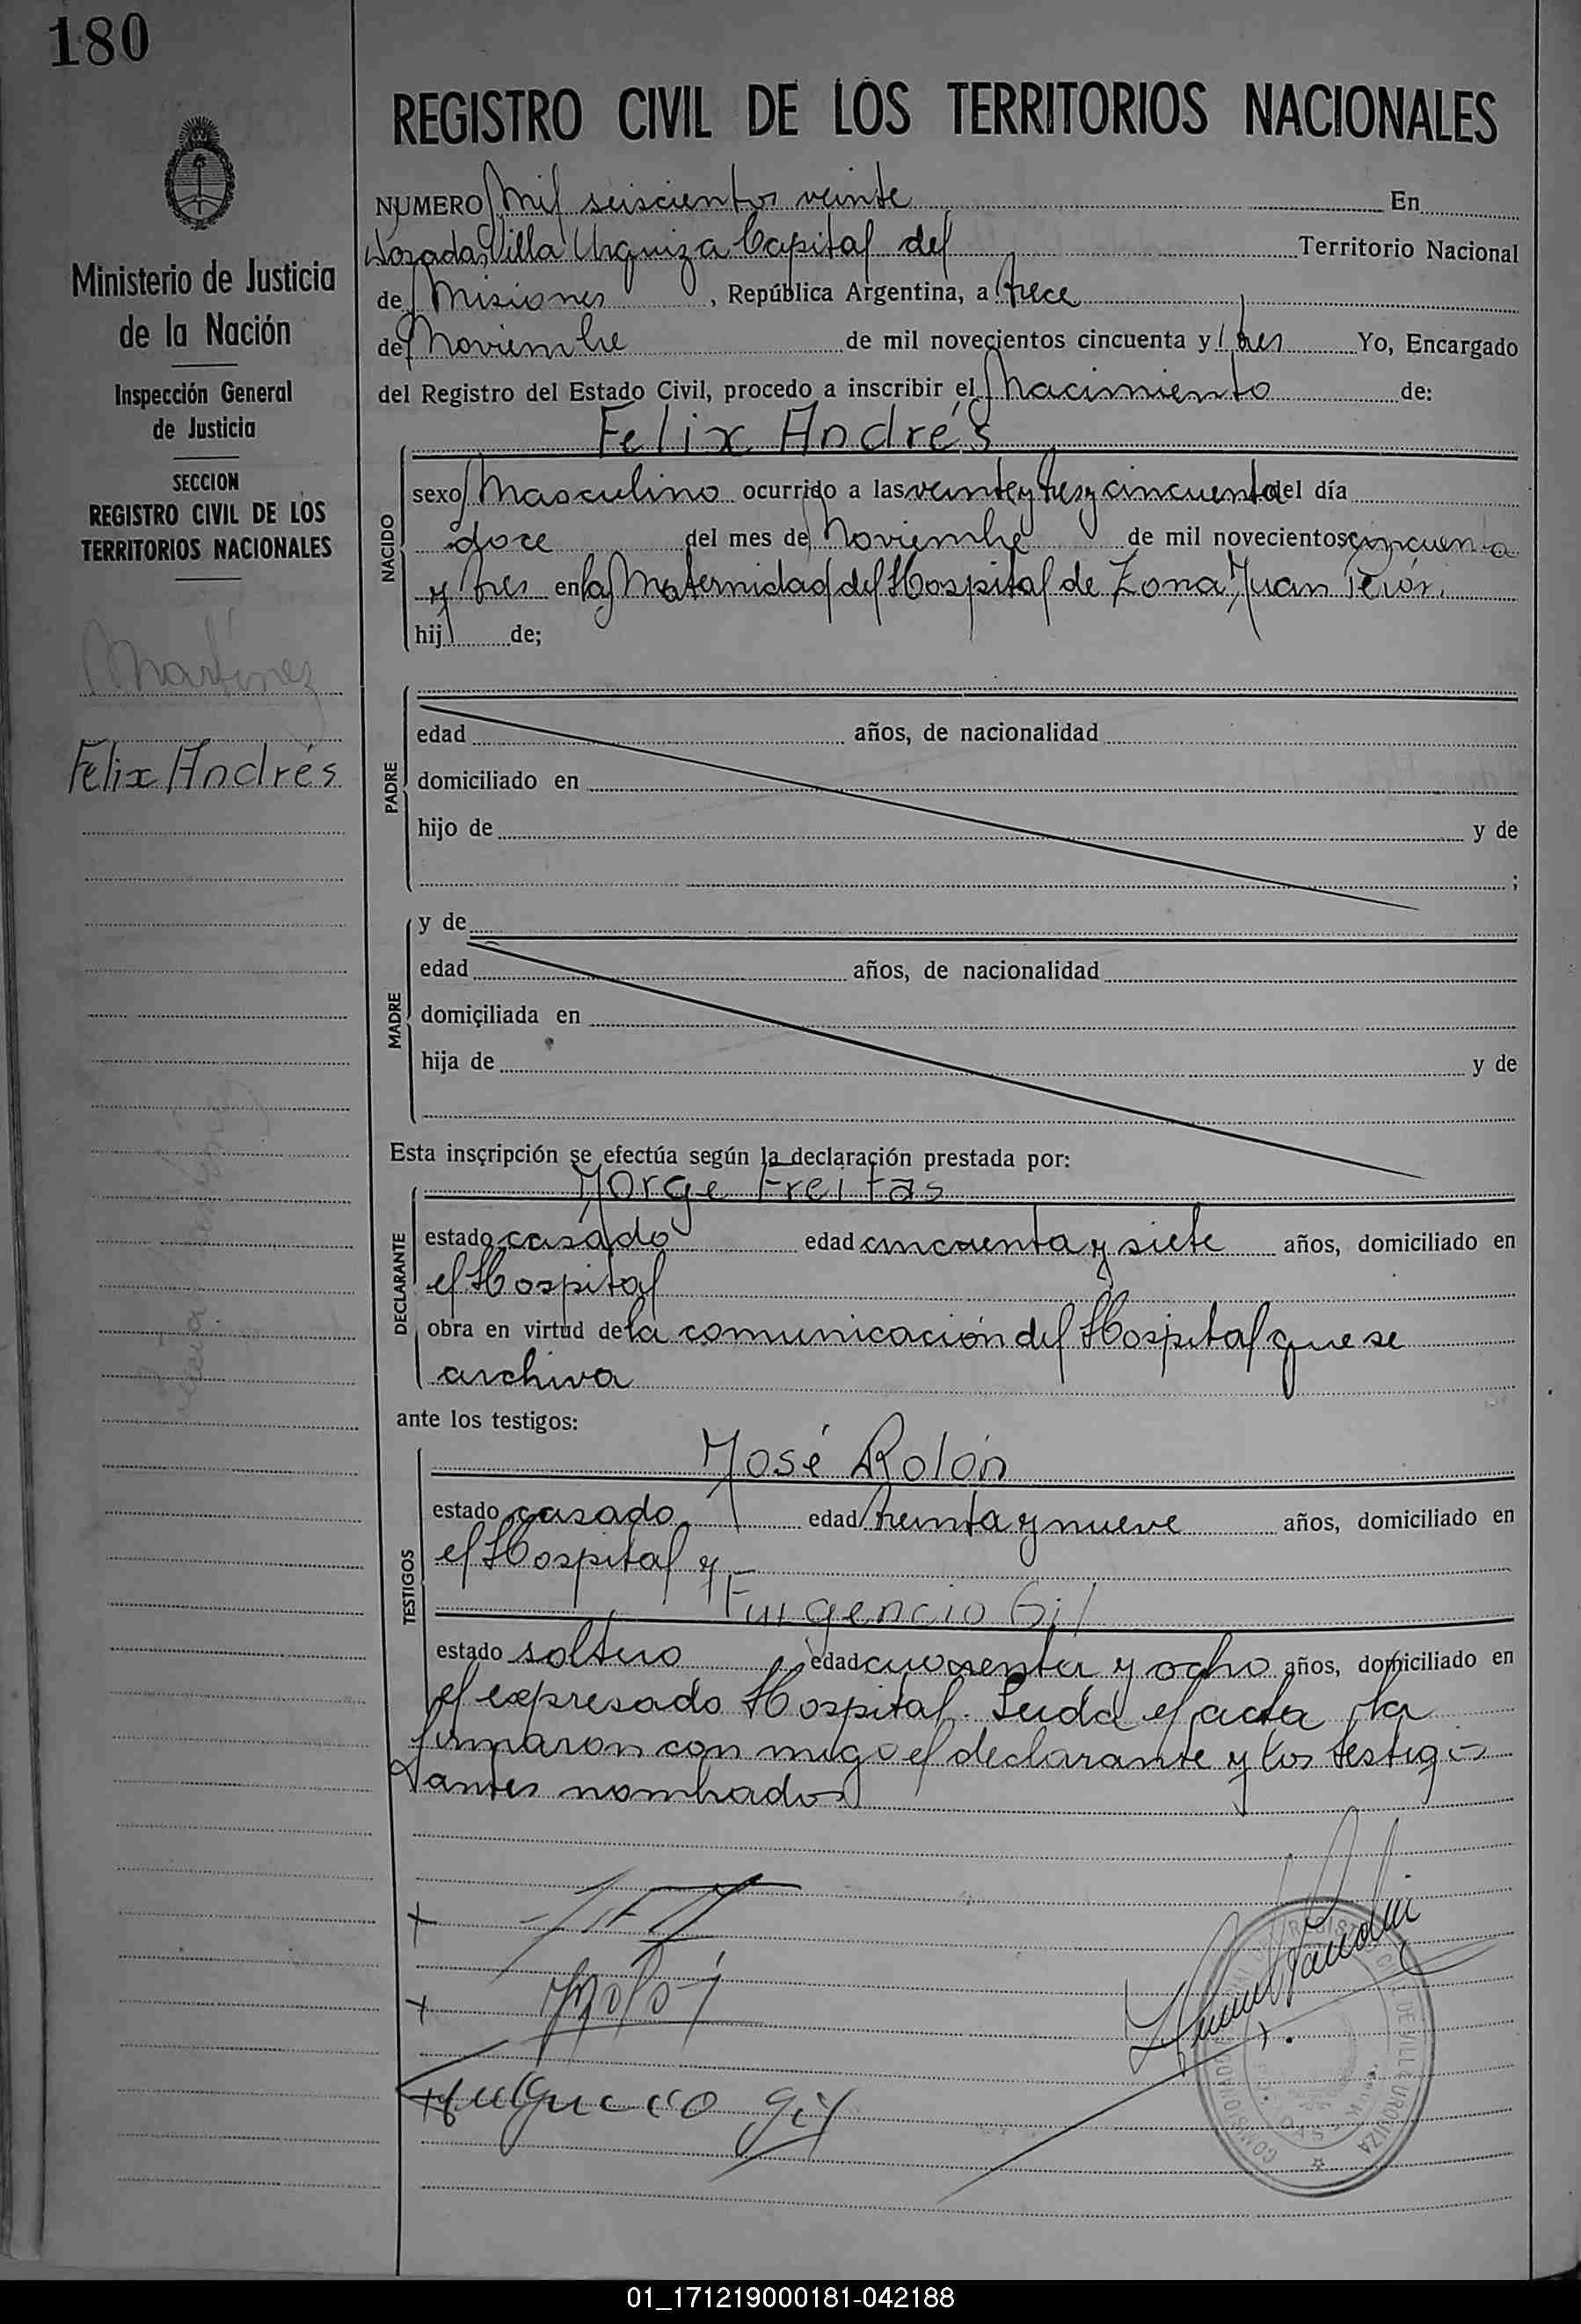 180
REGISTRO CIVIL DE LOS TERRITORIOS NACIONALES
Ministerio de Justicia
de la Nación
Inspección General
de Justicia
SECCION
REGISTRO CIVIL DE LOS
TERRITORIOS NACIONALES
Martínez
Felix Andrés
NUMERO Mil seiscientos veinte En
Posadas, Villa Urquiza Capital del Territorio Nacional
de Misiones, República Argentina, a trece
de Noviembre de mil novecientos cincuenta y tres Yo, Encargado
del Registro del Estado Civil, procedo a inscribir el Nacimiento de:
NACIDO
Felix Andrés
sexo Masculino ocurrido a las veinte y tres y cincuenta del día
doce del mes de Noviembre de mil novecientos cincuenta
y tres en la Maternidad del Hospital de Zona Juan Perón.
hij de;
PADRE
edad años, de nacionalidad
domiciliado en
hijo de y de
;
MADRE
y de
edad años, de nacionalidad
domiciliada en
hija de y de
Esta inscripción se efectúa según la declaración prestada por:
DECLARANTE
Jorge Freitas
estado casado edad cincuenta y siete años, domiciliado en
el Hospital
obra en virtud de la comunicación del Hospital que se
archiva
ante los testigos:
TESTIGOS
José Rolón
estado casado edad treinta y nueve años, domiciliado en
el Hospital y
Fulgencio Gil
estado soltero edad cuarenta y ocho años, domiciliado en
el expresado Hospital. Leída el acta la
firmaron con migo el declarante y los testigos
antes nombrados
Fulgencio Gil
REGISTRO CIVIL DE VILLA URQUIZA
01_171219000181-042188